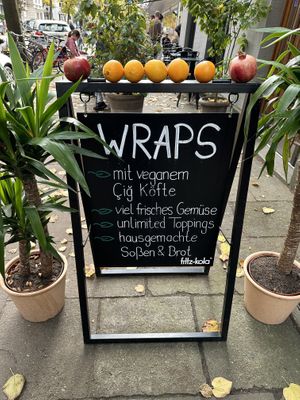 WRAPS
mit veganem
Çiğ Köfte
viel frisches Gemüse
unlimited Toppings
hausgemachte
Soßen & Brot
fritz-kola